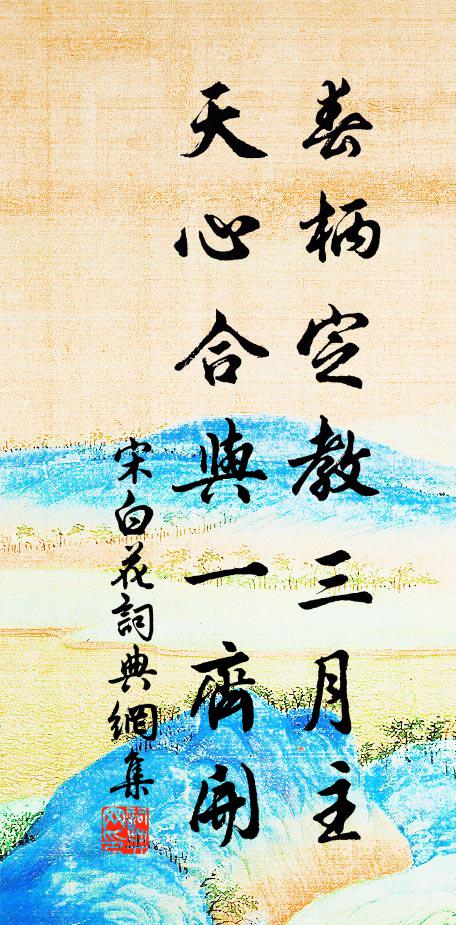 春柄定教三月主
天心合與一齊開
宋白花詞典網集